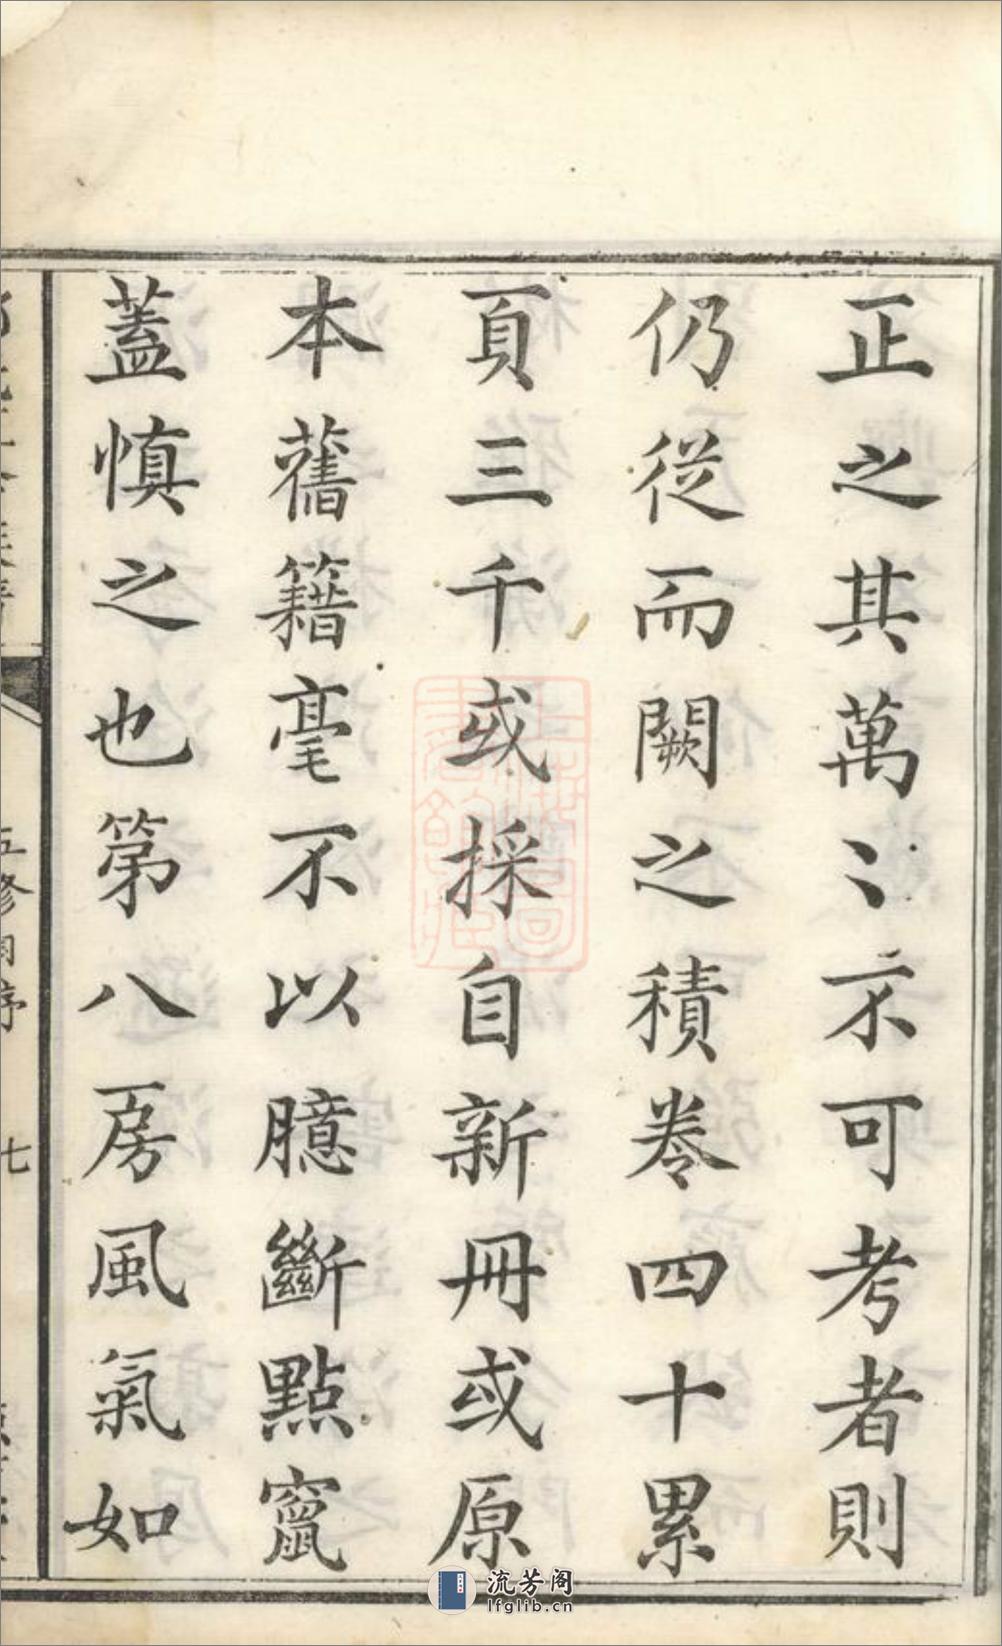 正之其萬〻不可考者則
仍從而闕之積卷四十累
頁三千或採自新冊或原
本舊籍毫不以臆斷點竄
蓋慎之也第八房風氣如
五修自序
七
上海圖書館藏
流芳阁
lfglib.cn